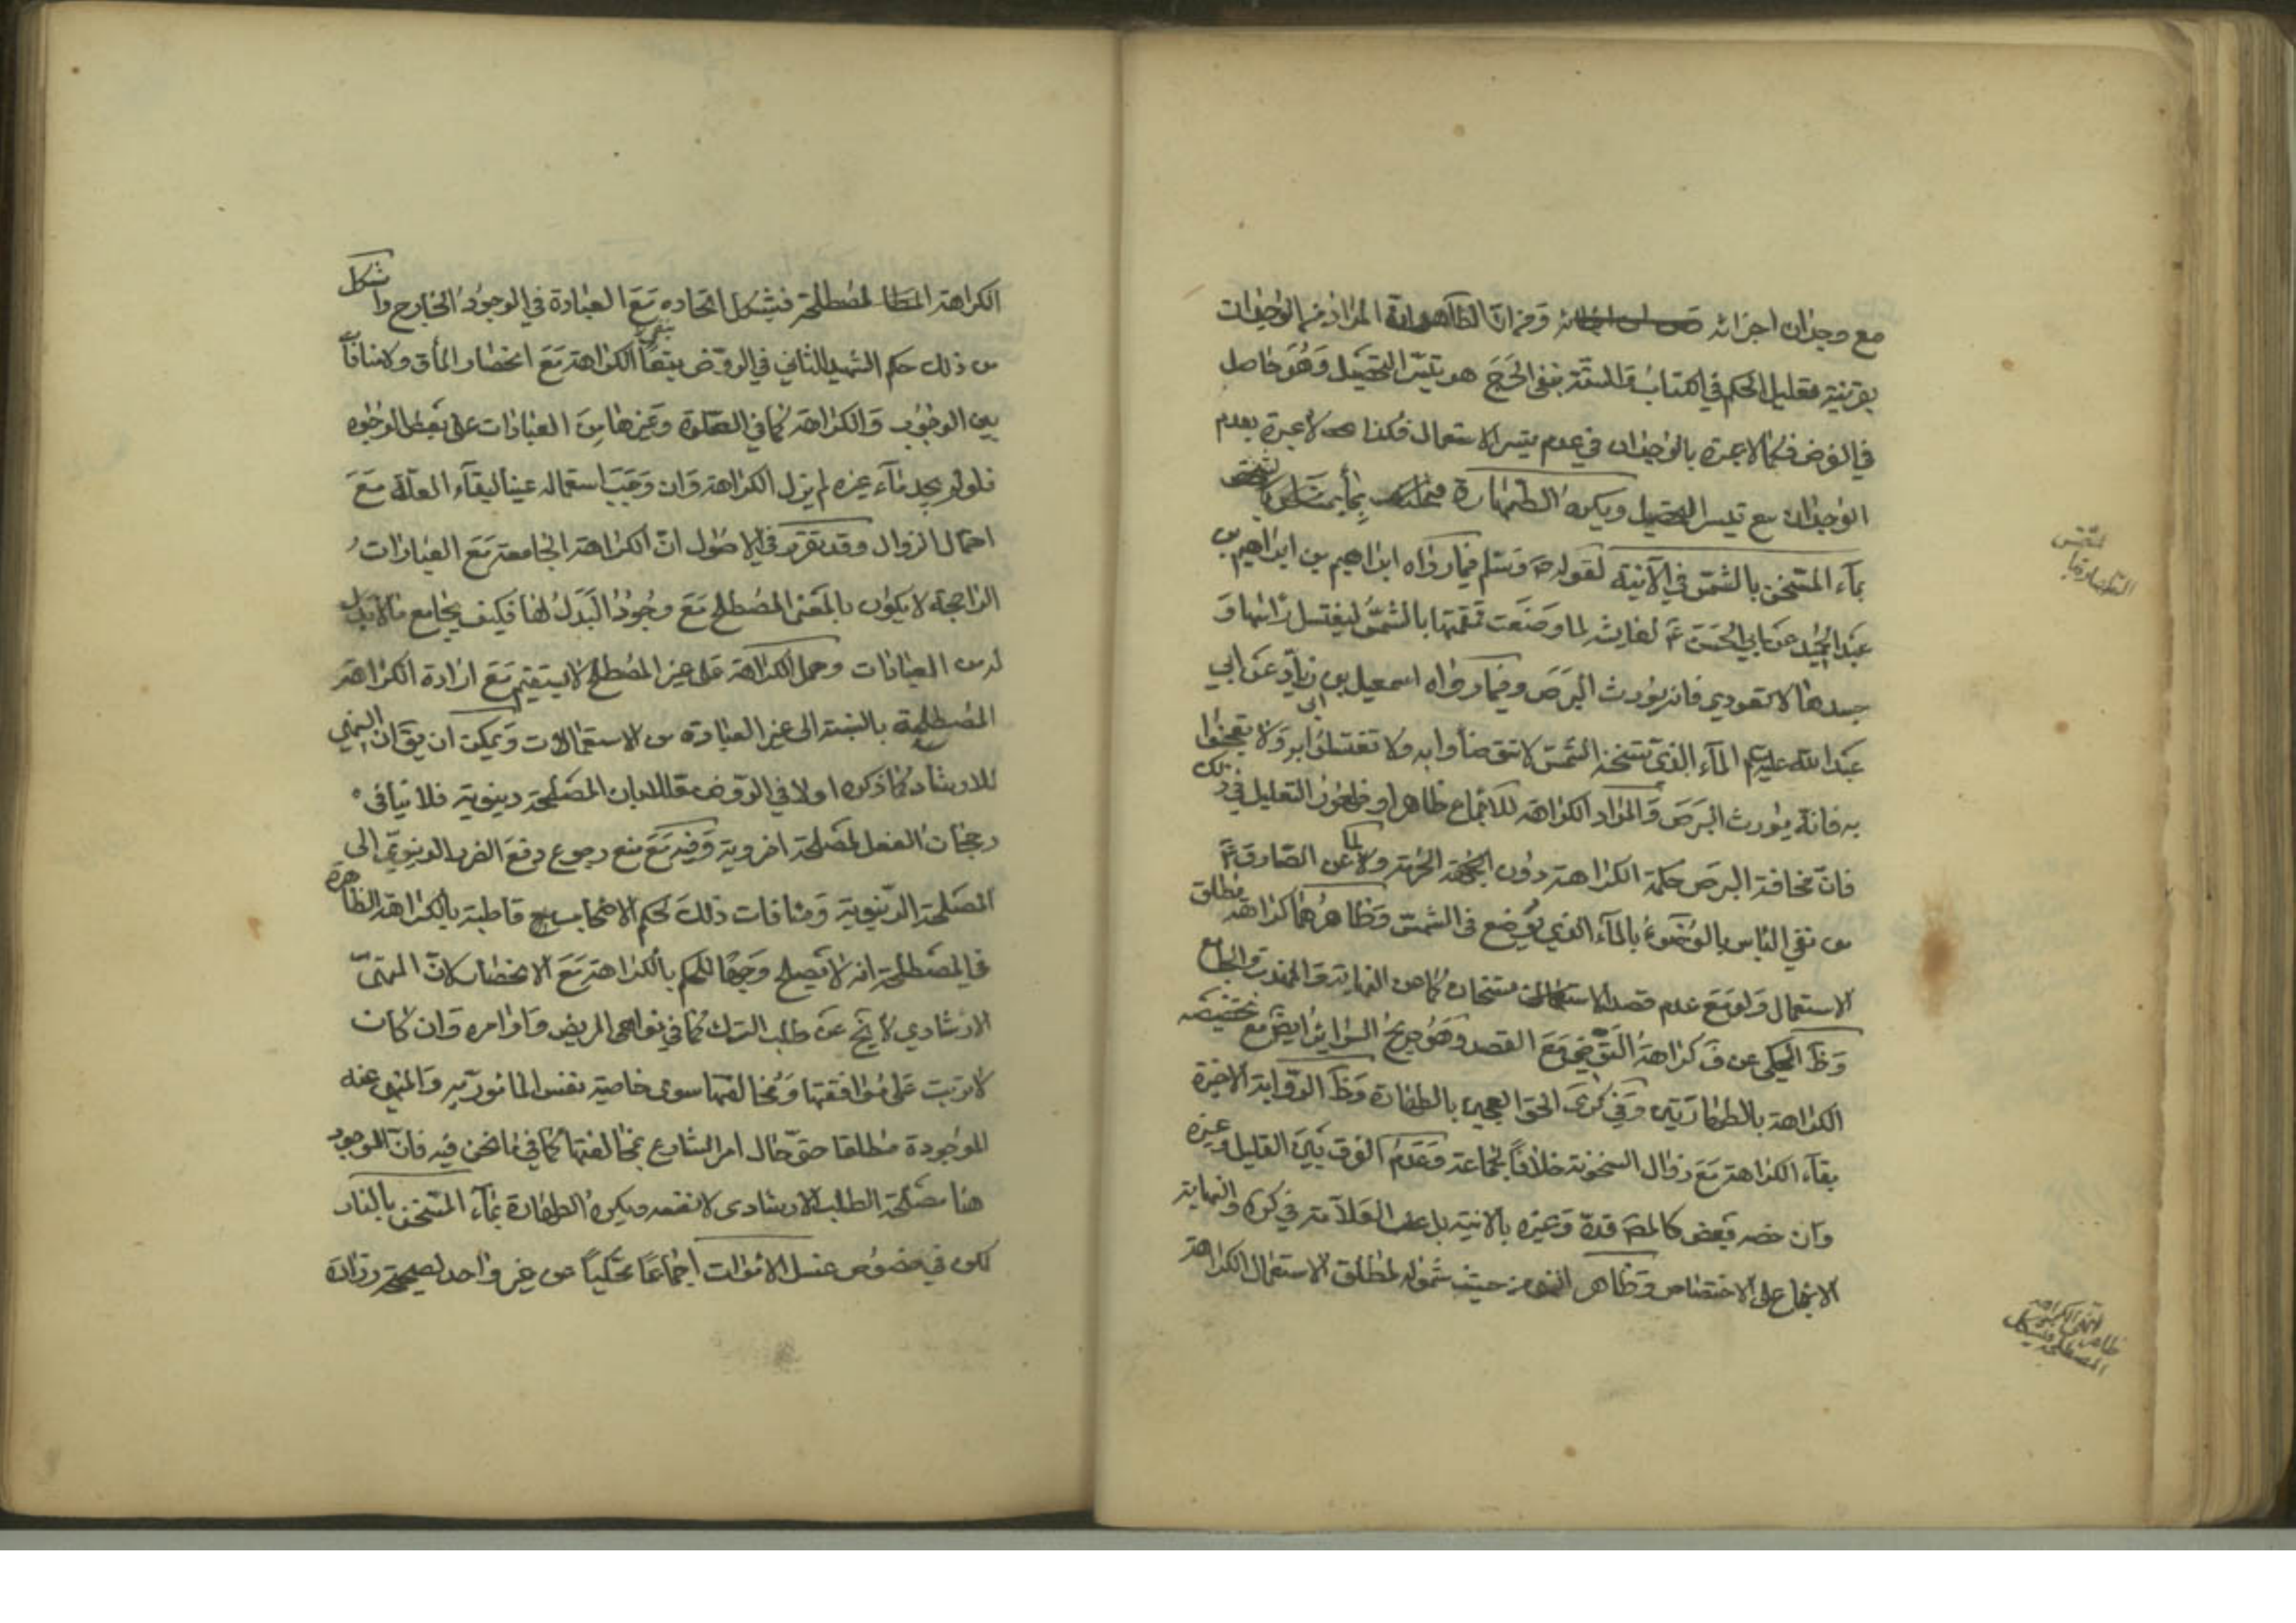 مع وجدان اجزائه وفيه ان الظاهر ان المراد من الوجدان
بقرينة تعليل الحكم في الكتاب والسنة بنفي الحرج هو تيسر التحصيل وهو حاصل
في الفرض فكما لا عبرة بالوجدان في عدم تيسر الاستعمال فكذا لا عبرة بعدم
الوجدان مع تيسر التحصيل ويكره الطهارة
بماء المسخن بالشمس في الآنية لقوله ص وسلم فيما رواه ابراهيم بن
عبد الحميد عن ابي الحسن ع لعايشه لما وضعت قمقمتها بالشمس ليغتسل راسها و
جسدها لا تعودي فانه يورث البرص وفيما رواه اسمعيل بن ابي زياد عن ابي
عبد الله عليه السلم الماء الذي تسخنه الشمس لا تتوضأوا به ولا تغتسلوا به ولا تعجنوا
به فانه يورث البرص والمراد الكراهة للاجماع ظاهرا وظهور التعليل في ذلك
فان مخافة البرص حكمة الكراهة دون الحرمة ولما عن الصادق ع
من نفي الباس بالوضوء بالماء الذي يوضع في الشمس وظاهرهما كراهة مطلق
الاستعمال ولو مع عدم قصد كما عن النهاية والمهذب والجامع
وظ المحكي عن ف كراهة التوضي مع القصد وهو صريح السراير ايض مع تخصيصه
الكراهة بالطهارتين وفي كرى الحق العجين بالطهارة وظ الرواية الاخيرة
بقاء الكراهة مع زوال السخونة خلافا لجماعة وعدم الفرق بين القليل وغيره
وان خصه بعض كالمص قده وغيره بالانية بل عن العلامة في كره والنهاية
الاجماع على الاختصاص وظاهر النهي من حيث شموله لمطلق الاستعمال الكراهة
ظاهر النهي الكراهة
المصطلحة
الكراهة المصطلحة فيشكل اتحاده مع العبادة في الوجود الخارج واشكل
من ذلك حكم الشهيد الثاني في الروض ببقاء الكراهة مع انحصار الماء ق ولا منافاة
بين الوجوب والكراهة كما في الصلوة وغيرها من العبادات على بعض الوجوه
فلو لم يجد ماء غيره لم يزل الكراهة وان وجب استعماله عينا لبقاء العلة مع
احتمال الزوال وقد تقرر في الاصول ان الكراهة الجامعة مع العبادات
الراجحة لا يكون بالمعنى المصطلح مع وجود البدل لها فكيف يجامع ما لا بدل
له من العبادات وحمل الكراهة على غير المصطلح لا يستقيم مع ارادة الكراهة
المصطلحة بالنسبة الى غير العبادة من الاستعمالات ويمكن ان يق ان النهي
للارشاد كما ذكره اولا في الروض معللا بان المصلحة دينوية فلا ينافي
رجحان الفعل لمصلحة اخروية وفيه مع منع رجوع دفع الضرر الدينوي الى
المصلحة الدينوية ومنافات ذلك لحكم الاصحاب قاطبة بالكراهة الظاهرة
في المصطلحة انه لا يصلح وجها للحكم بالكراهة مع الانحصار لان النهي
الارشادي لا يخ عن طلب الترك كما في نواهي المريض واوامره وان كان
لا يترتب على موافقتها ومخالفتها سوى خاصية نفس المامور به والمنهي عنه
الموجودة مطلقا حتى حال امر الشارع بمخالفتها كما في ما نحن فيه فان الموجود
هنا مصلحة الطلب الارشادي لا نفسه ويكره الطهارة بماء المسخن بالنار
لكن في خصوص غسل الاموات اجماعا محكيا عن غير واحد لصحيحة زرارة